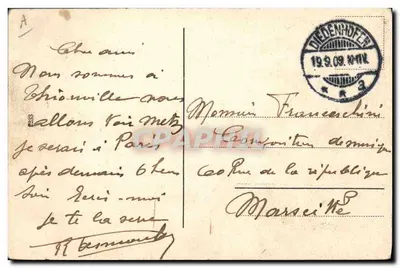 A
Cher ami
Nous sommes à
Thionville nous
allons voir Metz
je serai à Paris
après demain 6h
soir Ecris-moi
je te la serre
DIEDENHOFEN
19.9.09.
* * a
Monsieur Franceschini
Compositeur de musique
60 Rue de la république
Marseille